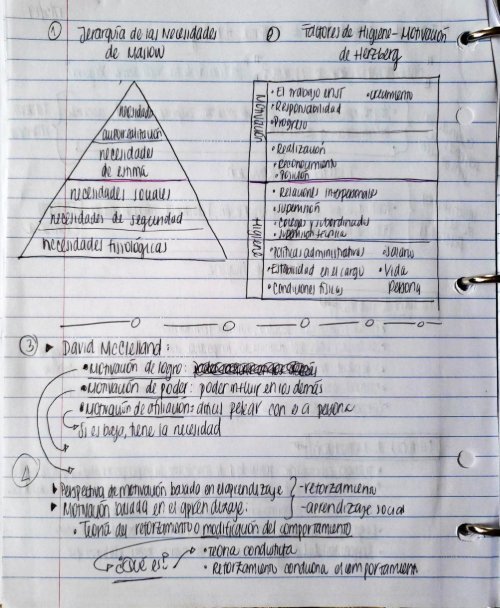 ① Jerarquía de las Necesidades
de Maslow
② Factores de Higiene-Motivación
de Herzberg
necesidades
autorrealización
necesidades
de estima
necesidades sociales
necesidades de seguridad
necesidades fisiológicas
Motivación
• El trabajo en sí • crecimiento
• Responsabilidad
• Progreso
• Realización
• Reconocimiento
• Posición
Higiene
• Relaciones interpersonales
• Supervisión
• Colegas y subordinados
• Supervisión técnica
• Políticas administrativas • Salario
• Estabilidad en el cargo • Vida
• Condiciones físicas Persona
③ ▸ David McClelland:
• Motivación de logro:
• Motivación de poder: poder influir en los demás
• Motivación de afiliación: difícil pelear con esa persona
Si es bajo, tiene la necesidad
④
▸ Perspectiva de motivación basado en el aprendizaje } - reforzamiento
▸ Motivación basada en el aprendizaje. - aprendizaje social
• Teoría del reforzamiento o modificación del comportamiento
¿Qué es? • teoría conductista
• Reforzamiento condiciona el comportamiento